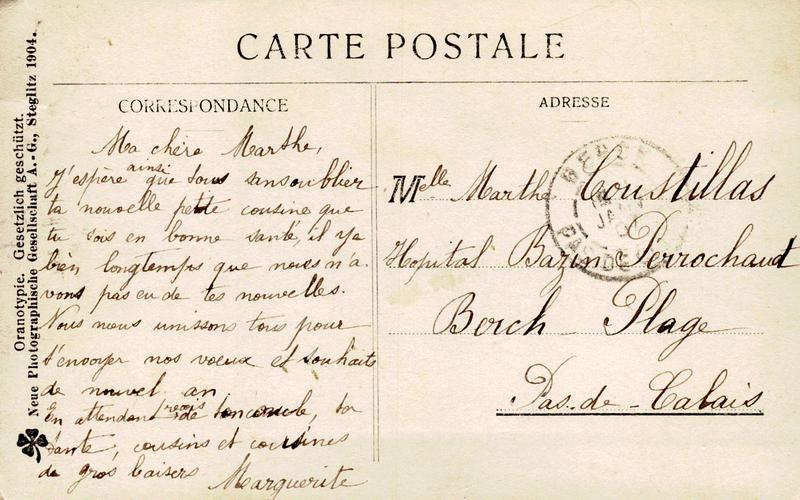 CARTE POSTALE
CORRESPONDANCE
Ma chère Marthe,
J'espère ainsi que tous sans oublier
ta nouvelle petite cousine que
tu sois en bonne santé, il y a
bien longtemps que nous n'a
vons pas eu de tes nouvelles.
Nous nous unissons tous pour
t'envoyer nos voeux et souhaits
de nouvel an
En attendant reçois de ton oncle, ta
tante, cousins et cousines
de gros baisers Marguerite
ADRESSE
Melle Marthe Coustillas
Hopital Bazin Perrochaud
Berch Plage
Pas-de-Calais
BERCK
PAS DE
Oranotypie. Gesetzlich geschützt.
Neue Photographische Gesellschaft A.-G., Steglitz 1904.